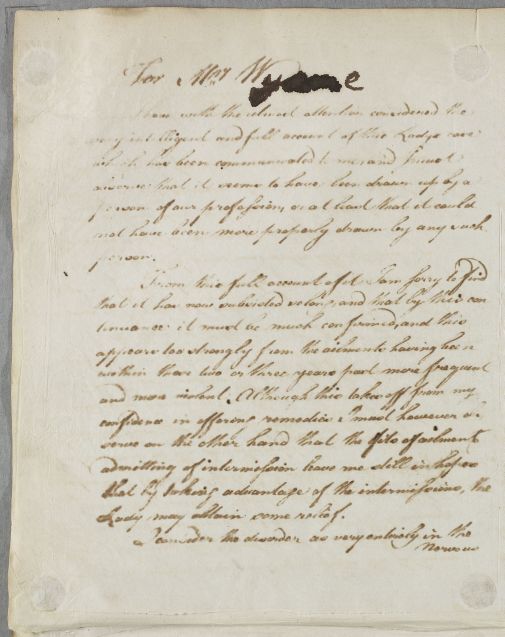 For Mrs W
I have with the utmost attention considered the
very intelligent and full account of this Ladys case
which has been communicated to me and I must
observe that it seems to have been drawn up by a
person of our profession, or at least that it could
not have been more properly drawn by any such
person.
From this full account of it I am sorry to find
that it has now subsisted so long, and that by this con
tinuance it must be much confirmed, and this
appears too strongly from the ailments having been
within these two or three years past more frequent
and more violent. Although this takes off from my
confidence in offering remedies I must however ob
serve on the other hand that the fits of ailment
admitting of intermission leave me still in hopes
that by taking advantage of the intermissions, the
Lady may obtain some relief.
I consider the disorder as very entirely in the
nervous